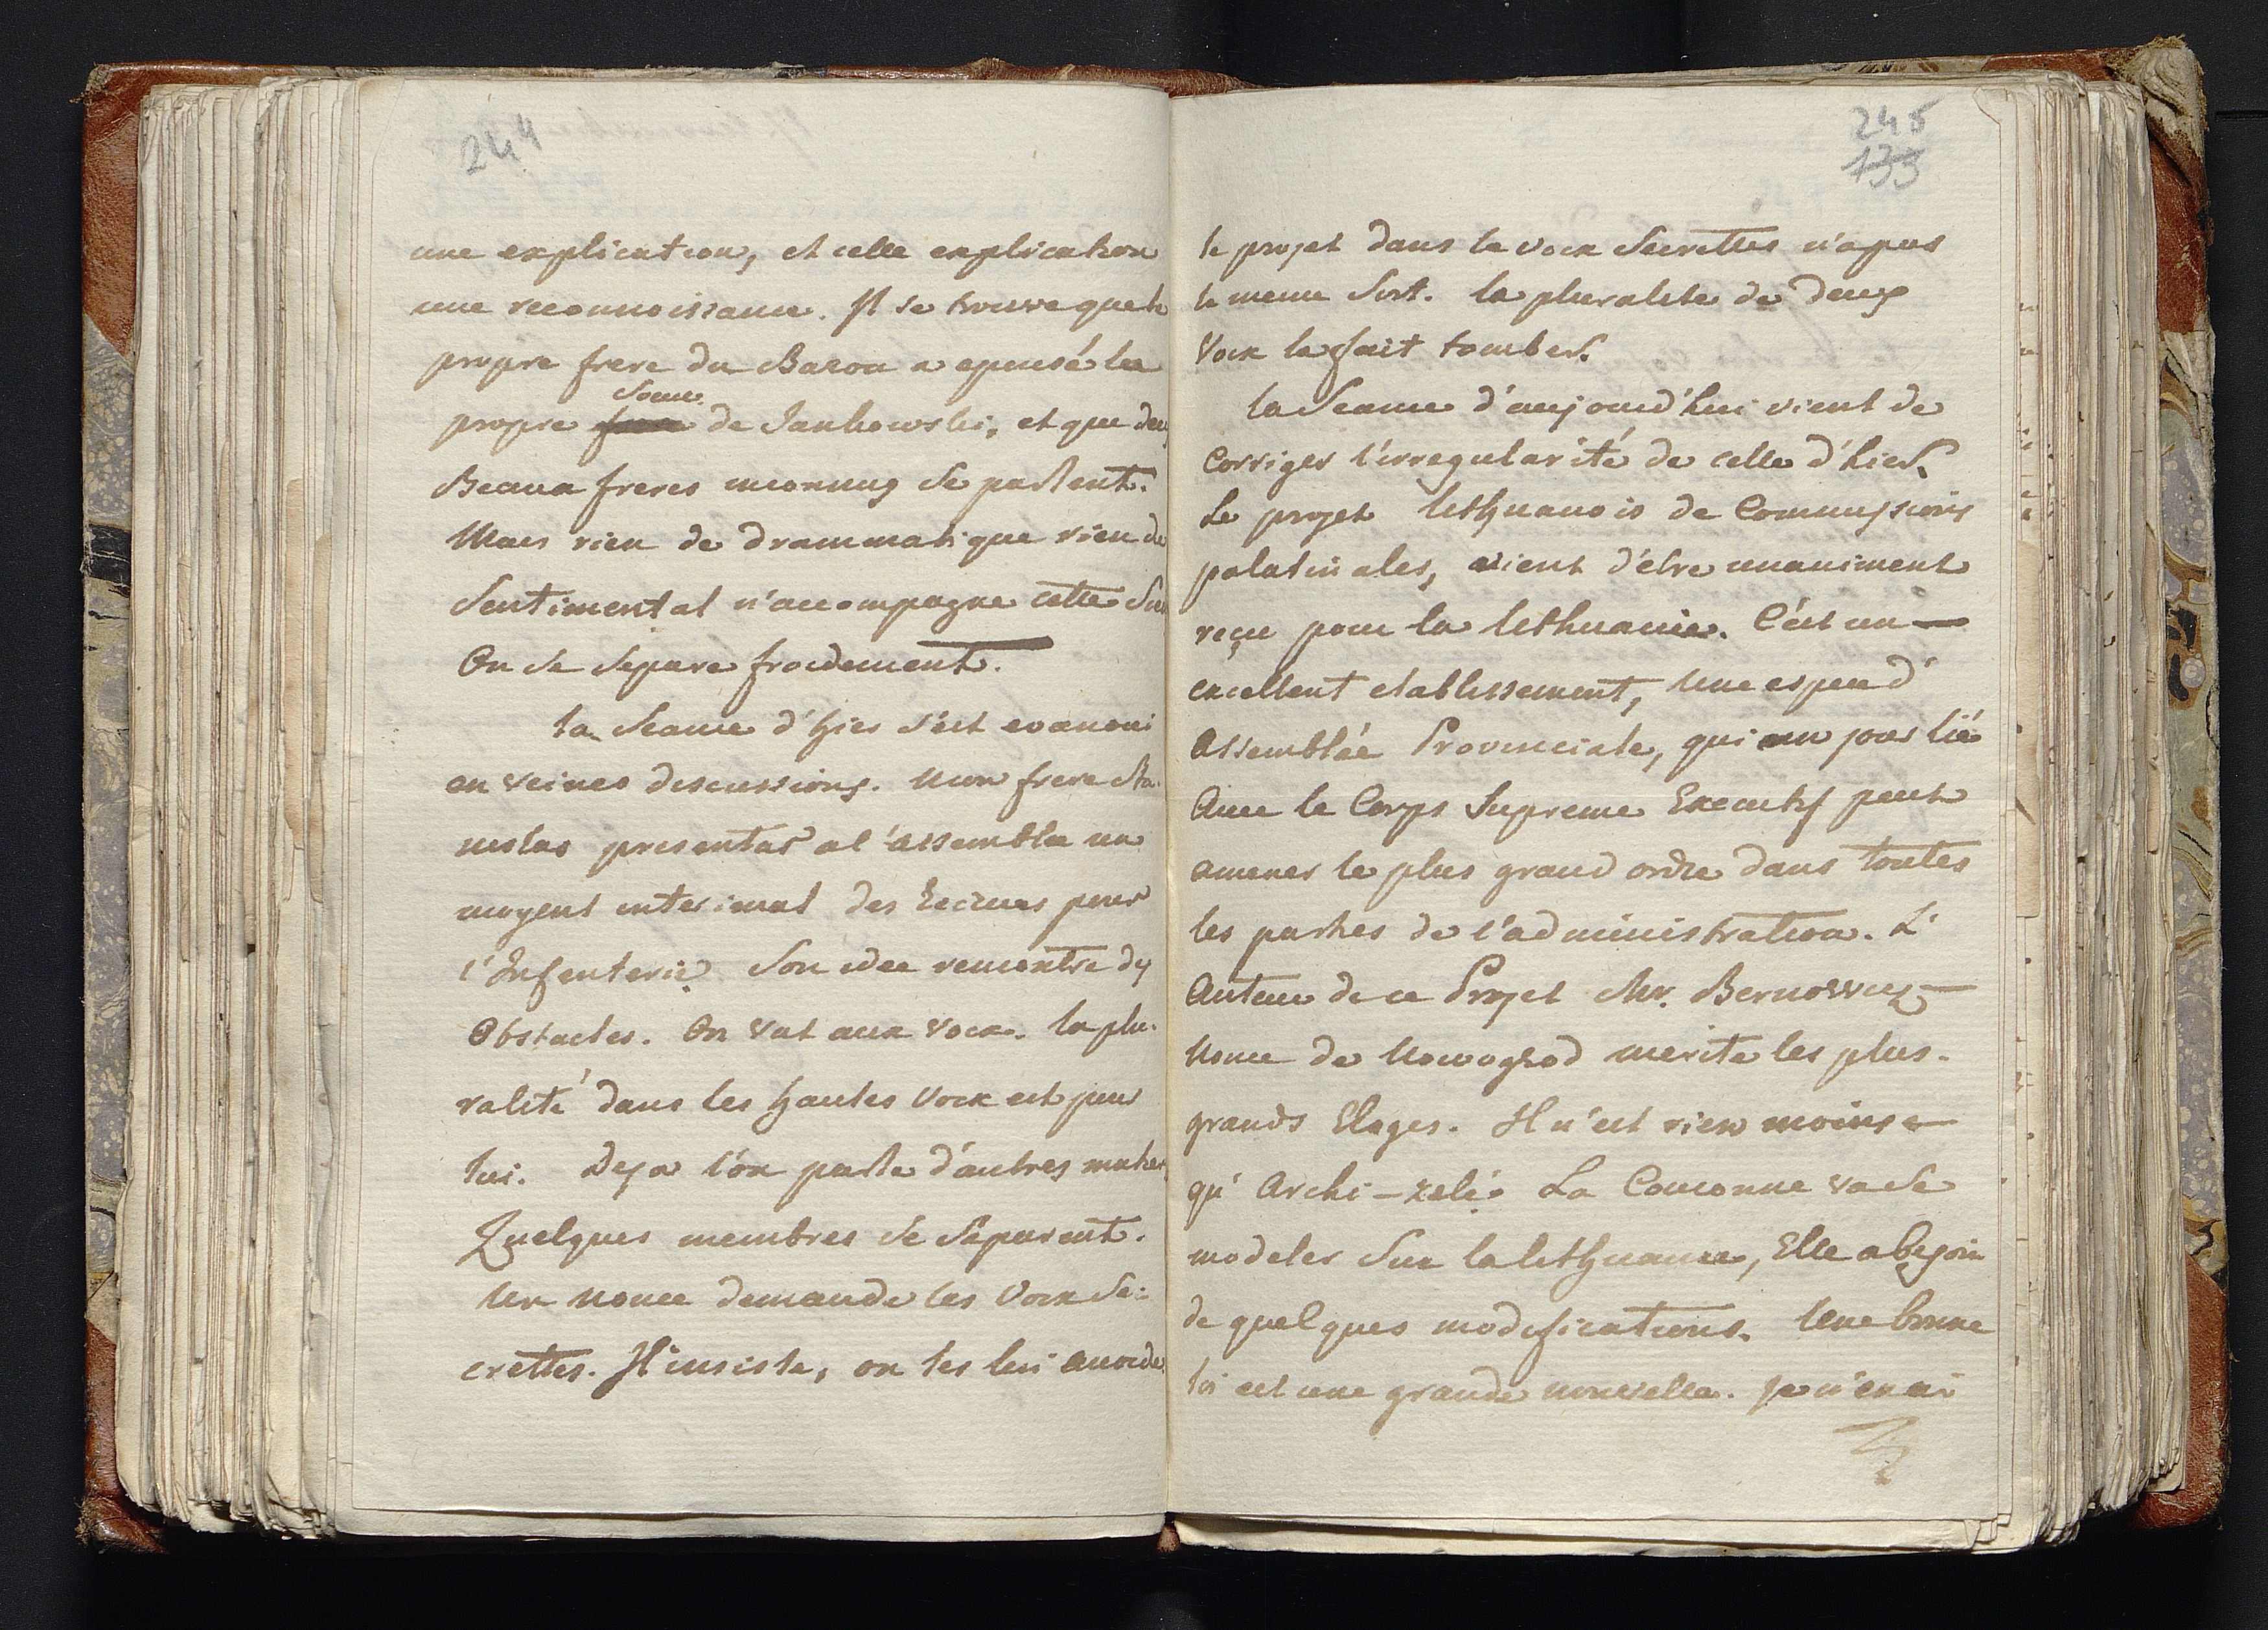 244
une explication, et cette explication
une reconnoissance. Il se trouve que le
propre frere du Baron a epousé la
Soeur
propre de Jankowski, et que deux
Beaux freres inconnus se parlent.
Mais rien de drammatique rien de
Sentimental n'accompagne cette
On se separe froidement.
la Seance d'hier s'est evanoui
en veines discussions. Mon frere Sta-
nislas presentat al'assemblée un
moyent interimal des Recrues pour
l'Infenterie. Son idee rencontre des
Obstacles. On vat aux voix. la plu-
ralité dans les hautes Voix est pour
lui. Deja l'on parle d'autres matieres
Quelques membres se separent.
Un nonce demande les Voix Se-
crettes. Il insiste, on les lui accorde
245
133
le projet dans le voix Secrettes n'apas
le meme Sort. la pluralité de deux
Voix la fait tomber.
la Seance d'aujourd'hui vient de
Corriger l'irregularité de celle d'hier.
Le projet lethuanois de Commissions
palatinales, vient d'être unaniment
reçu pour la lethuanie. C'est un
excellent etablissement, Une espece d'
Assemblée Provinciale, qui un jour lié
Avec le Corps Supreme Executif peut
amener le plus grand ordre dans toutes
les parties de l'administration. L'
Auteur de ce Projet Mr. Bernowicz
Nonce de Nowogrod merite les plus
grands Eloges. Il n'est rien moins
qu' Archi-zelé. La Couronne va se
modeler Sur la lethuanie, Elle a besoin
de quelques modifications. Une bonne
loi est une grande nouvelle. je n'en ai